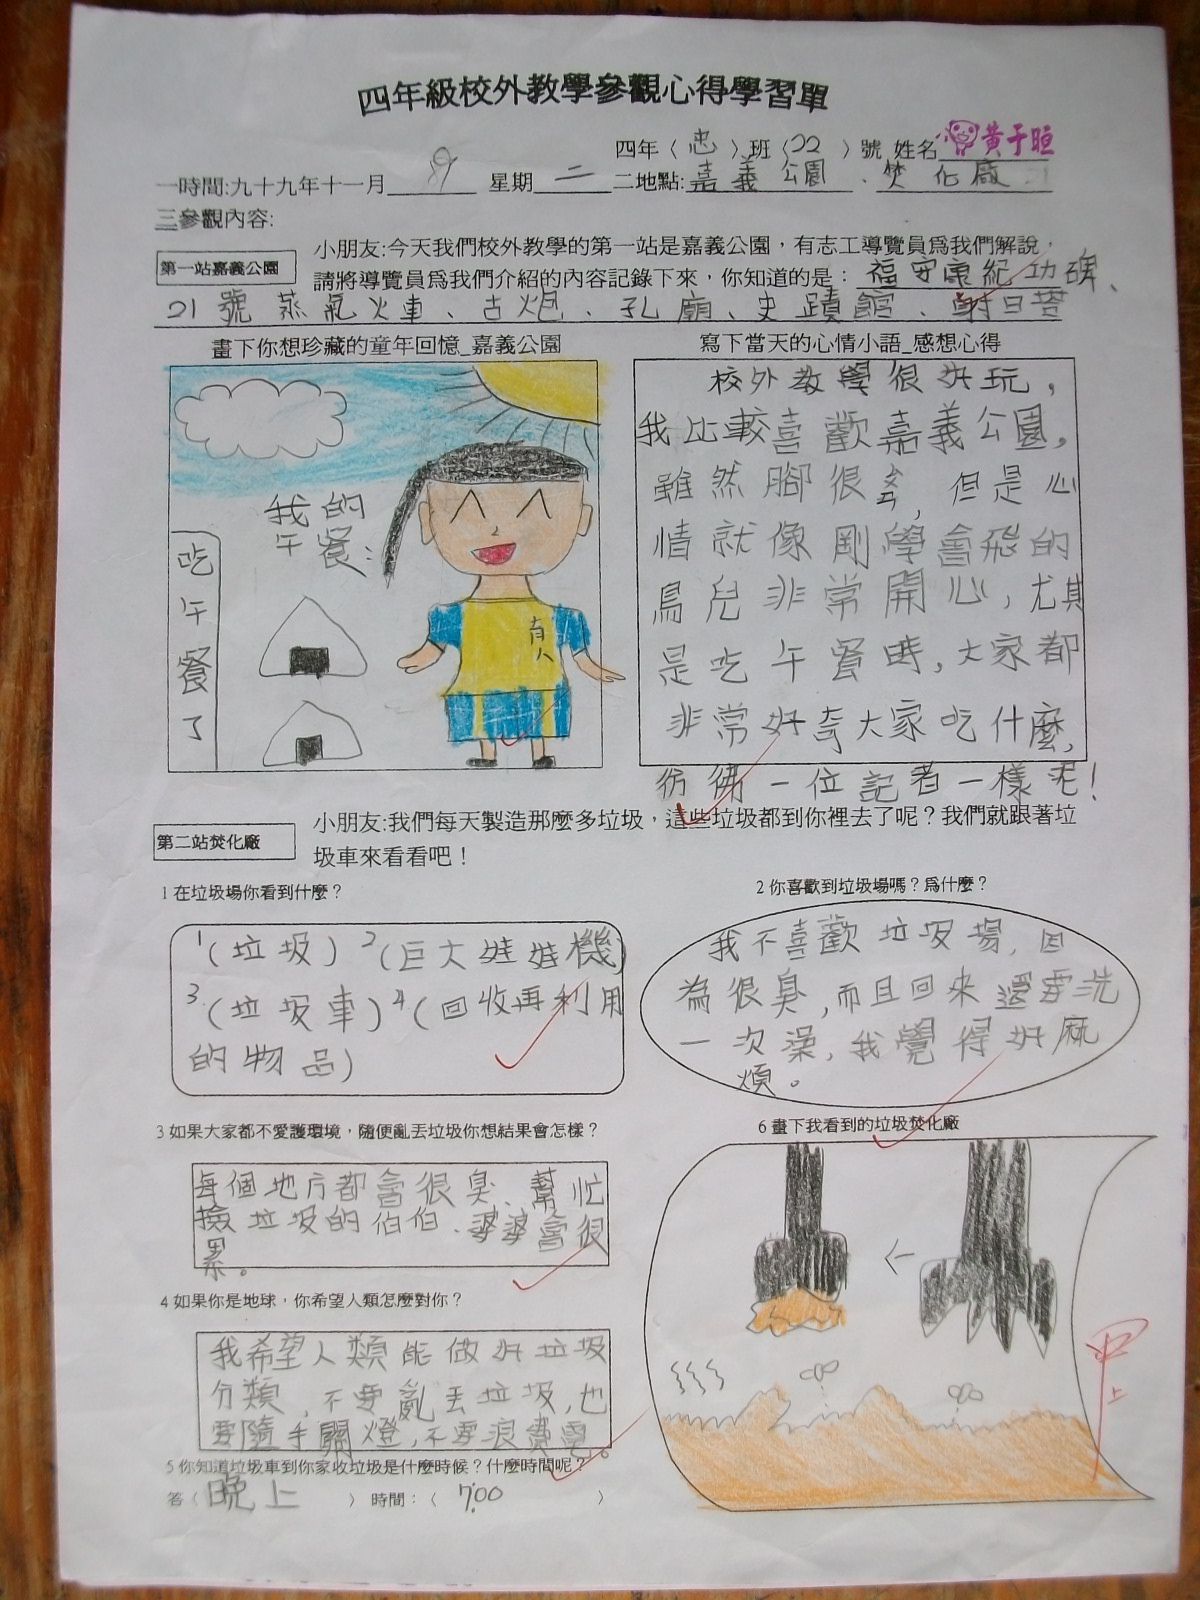 四年級校外教學參觀心得學習單
四年〈忠〉班〈22〉號 姓名 黃于恒
一時間:九十九年十一月 星期二 二地點:嘉義公園、焚化廠
三參觀內容:
第一站嘉義公園
小朋友:今天我們校外教學的第一站是嘉義公園，有志工導覽員為我們解說，
請將導覽員為我們介紹的內容記錄下來，你知道的是：福安康紀功碑、
21號蒸氣火車、古炮、孔廟、史蹟館、射日塔
畫下你想珍藏的童年回憶_嘉義公園
我的
午餐:
吃午餐了
寫下當天的心情小語_感想心得
校外教學很好玩，
我比較喜歡嘉義公園。
雖然腳很ㄙㄨㄢ，但是心
情就像剛學會飛的
鳥兒非常開心，尤其
是吃午餐時，大家都
非常好奇大家吃什麼，
彷彿一位記者一樣呢！
第二站焚化廠
小朋友:我們每天製造那麼多垃圾，這些垃圾都到你裡去了呢？我們就跟著垃
圾車來看看吧！
1在垃圾場你看到什麼？
1(垃圾) 2(巨大娃娃機)
3.(垃圾車) 4(回收再利用
的物品)
2你喜歡到垃圾場嗎？為什麼？
我不喜歡垃圾場，因
為很臭，而且回來還要洗
一次澡，我覺得好麻
煩。
3如果大家都不愛護環境，隨便亂丟垃圾你想結果會怎樣？
每個地方都會很臭、幫忙
撿垃圾的伯伯、婆婆會很
累。
4如果你是地球，你希望人類怎麼對你？
我希望人類能做好垃圾
分類，不要亂丟垃圾，也
要隨手關燈，不要浪費電。
5你知道垃圾車到你家收垃圾是什麼時候？什麼時間呢？
答〈晚上〉時間：〈7:00〉
6畫下我看到的垃圾焚化廠
甲上